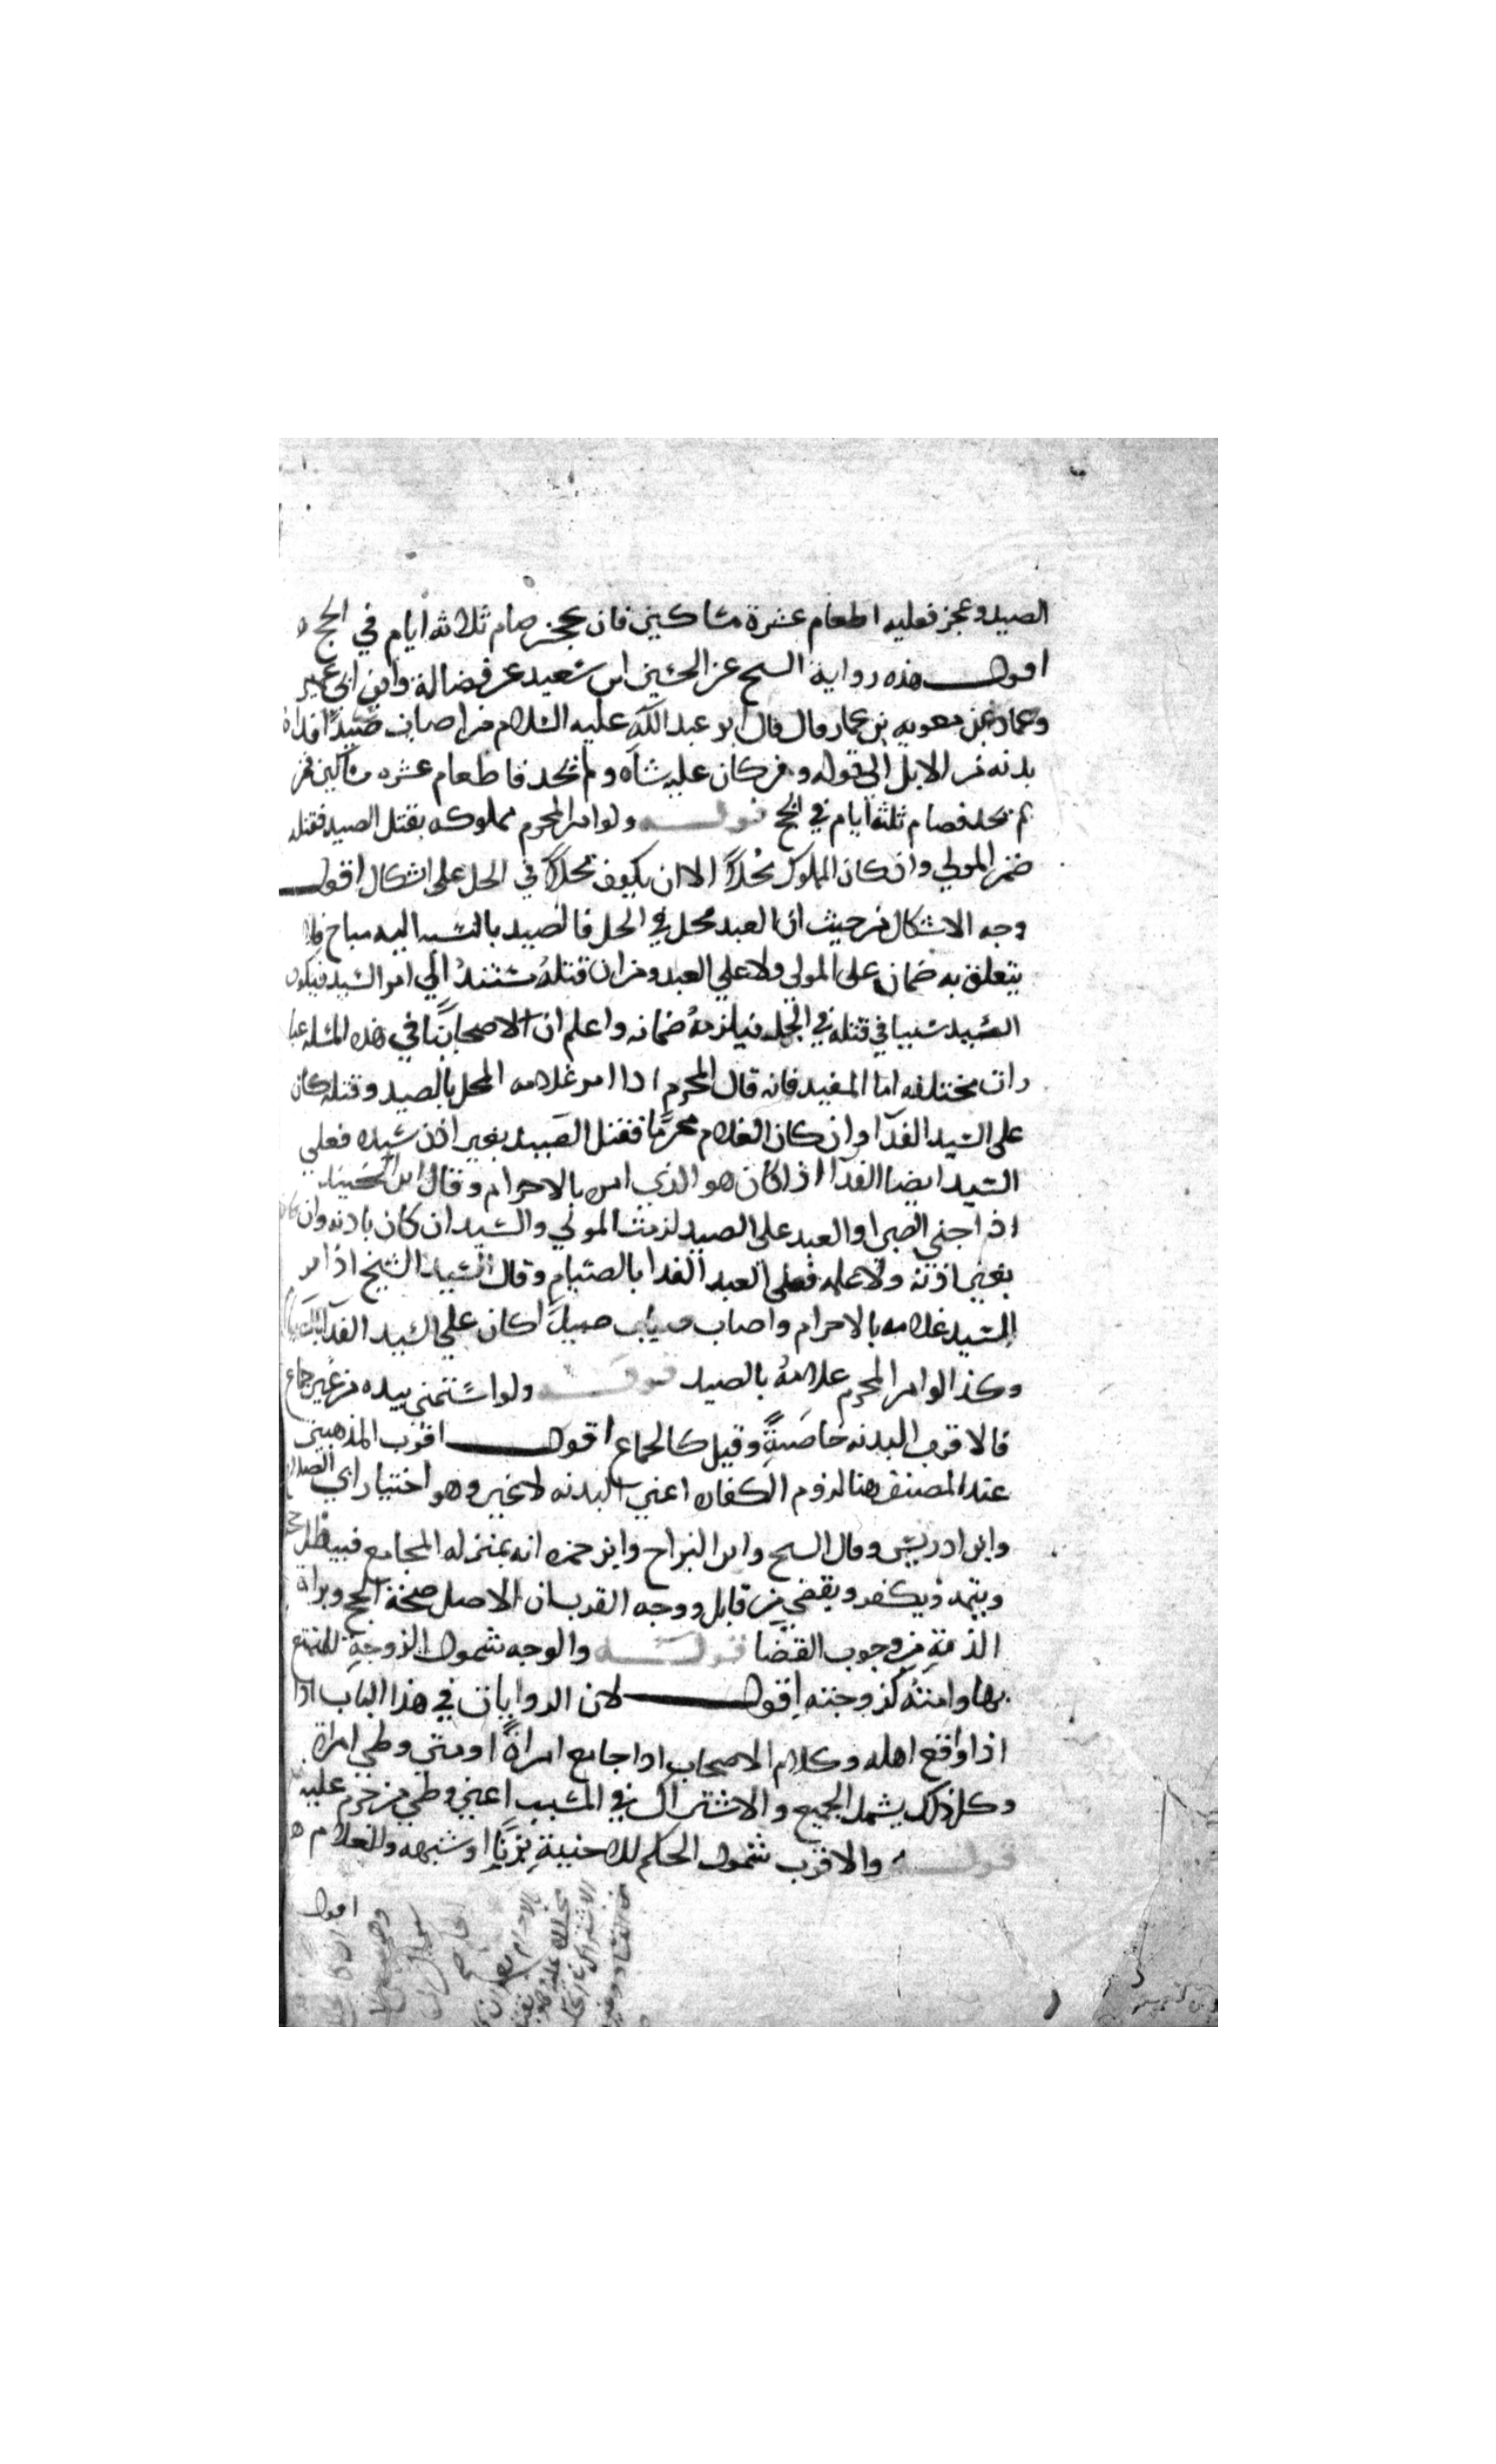 الصيد وعجز فعليه اطعام عشرة مساكين فان عجز صام ثلاثة ايام في الحج
اقول هذه رواية الشيخ عن الحسين ابن سعيد عن فضالة وابن ابي عمير
وحماد عن معويه بن عمار قال قال ابو عبد الله عليه السلام من اصاب صيدا فداه
بدنه من الابل الى قوله ومن كان عليه شاه ولم يجد فاطعام عشره مساكين فمن
لم يجد فصام ثلثه ايام في الحج قوله ولو امر المحرم مملوكه بقتل الصيد فقتله
ضمن المولي وان كان المملوك محلا الا ان يكون محلا في الحل على اشكال اقول
وجه الاشكال من حيث ان العبد محل في الحل فالصيد بالنسبه اليه مباح فلا
يتعلق به ضمان على المولي ولا علي العبد ومن ان قتله مستند الي امر السيد فيكون
السيد سببا في قتله في الجمله فيلزمه ضمانه واعلم ان لاصحابنا في هذه المسله عبا
رات مختلفه اما المفيد فانه قال المحرم اذا امر غلامه المحل بالصيد وقتله كان
على السيد الفدا وان كان الغلام محرما فقتل الصيد بغير اذن سيده فعلي
السيد ايضا الفدا اذا كان هو الذي امره بالاحرام وقال ابن الجنيد
اذا جني الصبي او العبد على الصيد لزمت المولي والسيد ان كان باذنه وان كان
بغير اذنه ولا علمه فعلى العبد الفدا بالصيام وقال الشيخ اذا امر
السيد غلامه بالاحرام واصاب صيدا كان علي السيد الفدا
وكذا لو امر المحرم غلامه بالصيد قوله ولو استمنى بيده من غير جماع
فالاقرب البدنه خاصة وقيل كالجماع اقول اقرب المذهبين
عند المصنف هنا لزوم الكفاره اعني البدنه لا غير وهو اختيار ابي الصلاح
وابن ادريس وقال الشيخ وابن البراج وابن حمزه انه بمنزله المجامع فيبطل حجه
ويتمه ويكفر ويقضي من قابل ووجه القرب ان الاصل صحة الحج وبراة
الذمة من وجوب القضا قوله والوجه شمول الزوجة للمتمتع
بها وامته كزوجته اقول لان الروايات في هذا الباب اذا
اذا واقع اهله وكلام الاصحاب اذا جامع امراة او متي وطي امراة
وكل ذلك يشمل الجميع والاشتراك في السبب اعني وطي من حرم عليه
قوله والاقرب شمول الحكم للاجنبية بزنا او شبهه والغلام
اقول